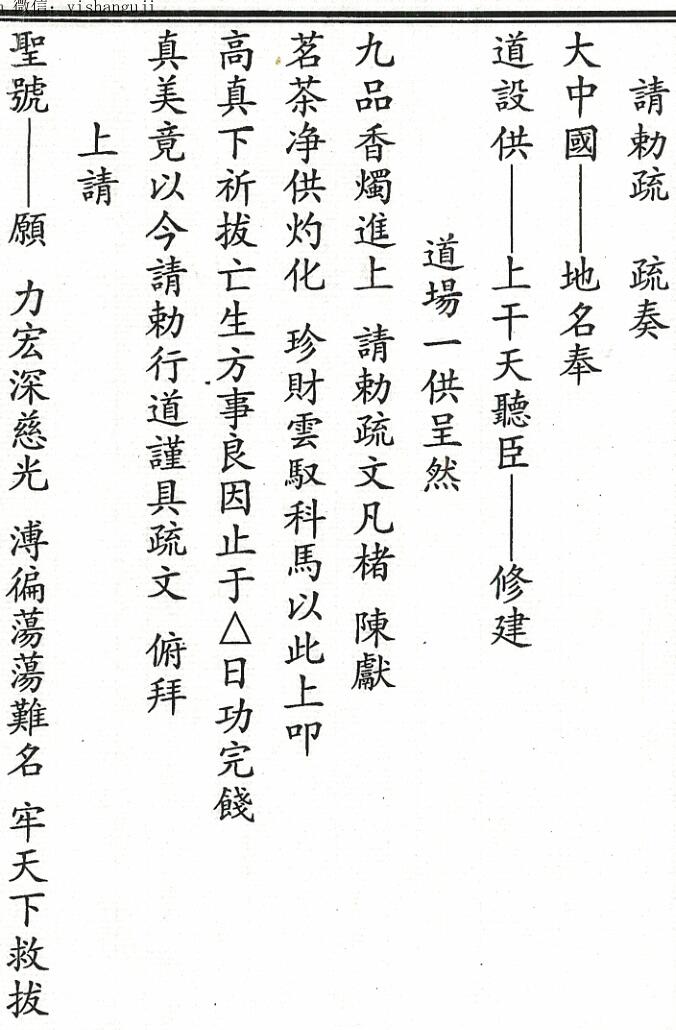 微信：yishanguji
請勅疏　疏奏
大中國——地名奉
道設供——上干天聽臣——修建
道場一供呈然
九品香燭進上　請勅疏文凡楮　陳獻
茗茶净供灼化　珍財雲馭科馬以此上叩
高真下祈拔亡生方事良因止于△日功完餞
真美竟以今請勅行道謹具疏文　俯拜
上請
聖號——願　力宏深慈光　溥徧蕩蕩難名　牢天下救拔